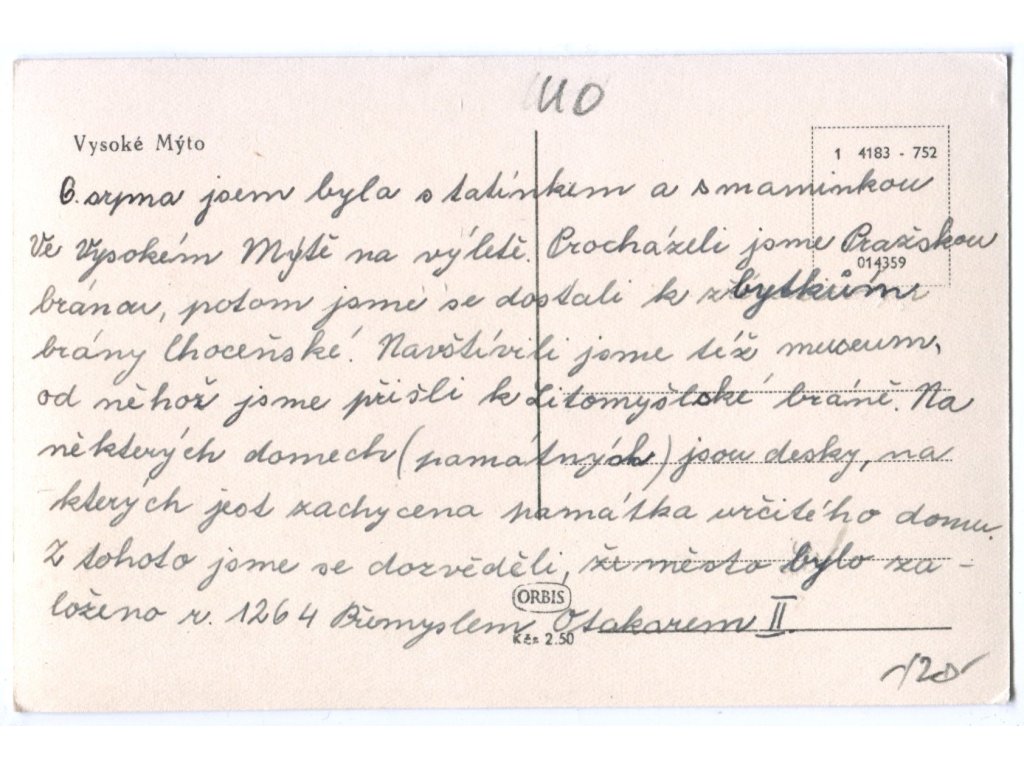 UO
Vysoké Mýto
1 4183 - 752
6. srpna jsem byla s tatínkem a s maminkou
Ve Vysokém Mýtě na výletě. Procházeli jsme Pražskou
014359
bránou, potom jsme se dostali k zbytkům
brány Choceňské. Navštívili jsme též museum,
od něhož jsme přišli k Litomyšlské bráně. Na
některých domech (památných) jsou desky, na
kterých jest zachycena památka určitého domu.
Z tohoto jsme se dozvěděli, že město bylo za-
loženo r. 1264 Přemyslem Otakarem II.
ORBIS
Kčs 2.50